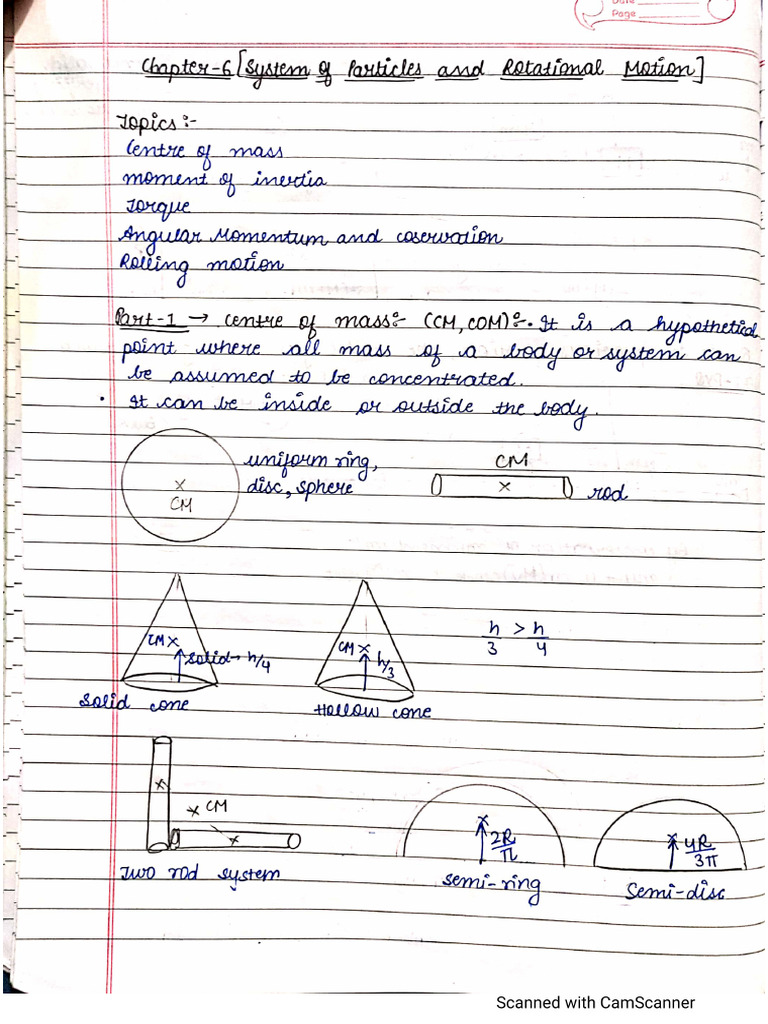 Date
Page
Chapter-6 [System of Particles and Rotational Motion]
Topics:-
Centre of mass
moment of inertia
Torque
Angular Momentum and coservation
Rolling motion
Part-1 → centre of mass:- (CM, COM):- • It is a hypothetical
point where all mass of a body or system can
be assumed to be concentrated.
• It can be inside or outside the body.
uniform ring,
disc, sphere
CM
CM
rod
CM
solid → h/4
Solid cone
CM
h/3
Hollow cone
h/3 > h/4
CM
Two rod system
2R/π
Semi-ring
4R/3π
Semi-disc
Scanned with CamScanner